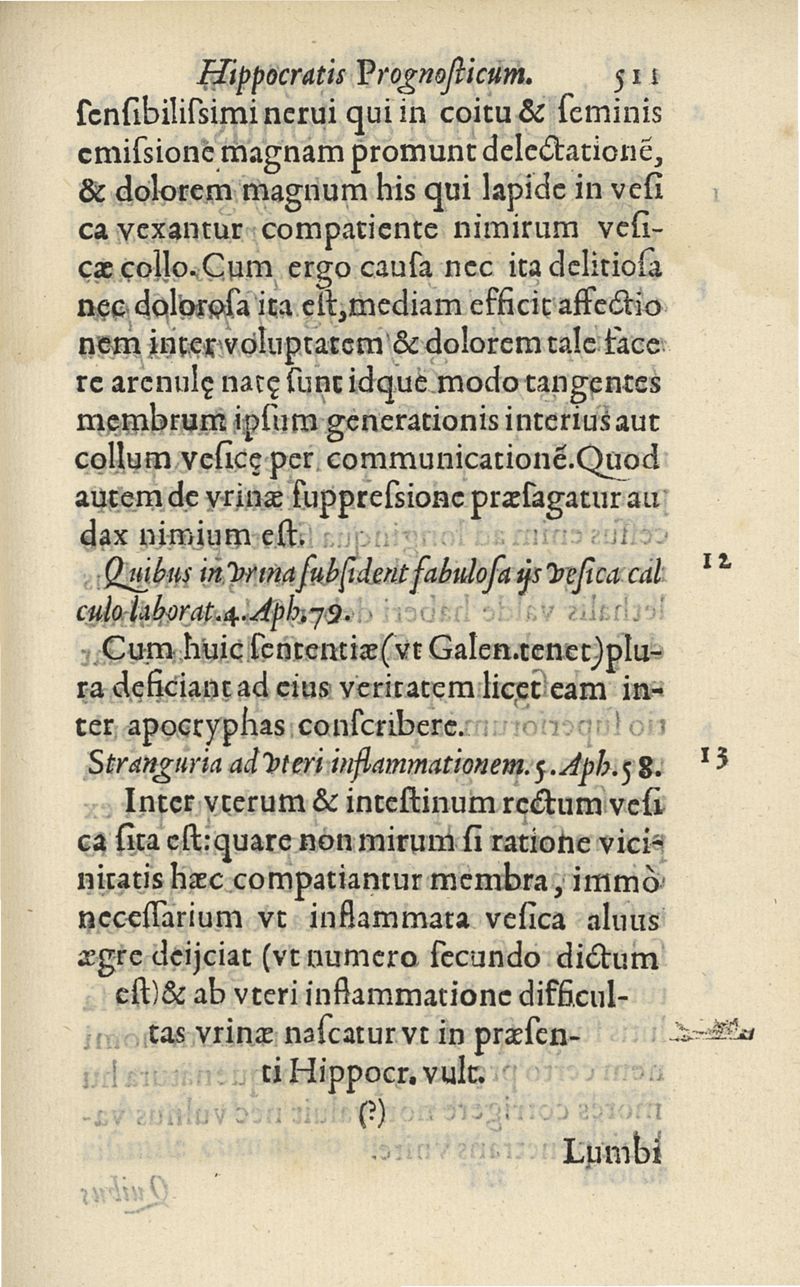 Hippocratis Prognoſticum. 511
ſenſibiliſsimi nerui qui in coitu & ſeminis
emiſsione magnam promunt delectationẽ,
& dolorem magnum his qui lapide in veſi
ca vexantur compatiente nimirum veſi-
cæ collo. Cum ergo cauſa nec ita delitioſa
nec doloroſa ita eſt, mediam efficit affectio
nem inter voluptatem & dolorem tale face
re arenulę natę ſunt idque modo tangentes
membrum ipſum generationis interius aut
collum veſicę per communicationẽ. Quod
autem de vrinæ ſuppreſsione præſagatur au
dax nimium eſt.
Quibus in vrina ſubſident ſabuloſa ijs veſica cal 12
culo laborat. 4. Aph. 79.
Cum huic ſententiæ (vt Galen. tenet) plu-
ra deficiant ad eius veritatem licet eam in-
ter apocryphas conſcribere.
Stranguria ad vteri inflammationem. 5. Aph. 58. 13
Inter vterum & inteſtinum rectum veſi
ca ſita eſt: quare non mirum ſi ratione vici-
nitatis hæc compatiantur membra, immò
neceſſarium vt inflammata veſica aluus
ægre deijciat (vt numero ſecundo dictum
eſt) & ab vteri inflammatione difficul-
tas vrinæ naſcatur vt in præſen-
ti Hippocr. vult.
(?)
Lumbi